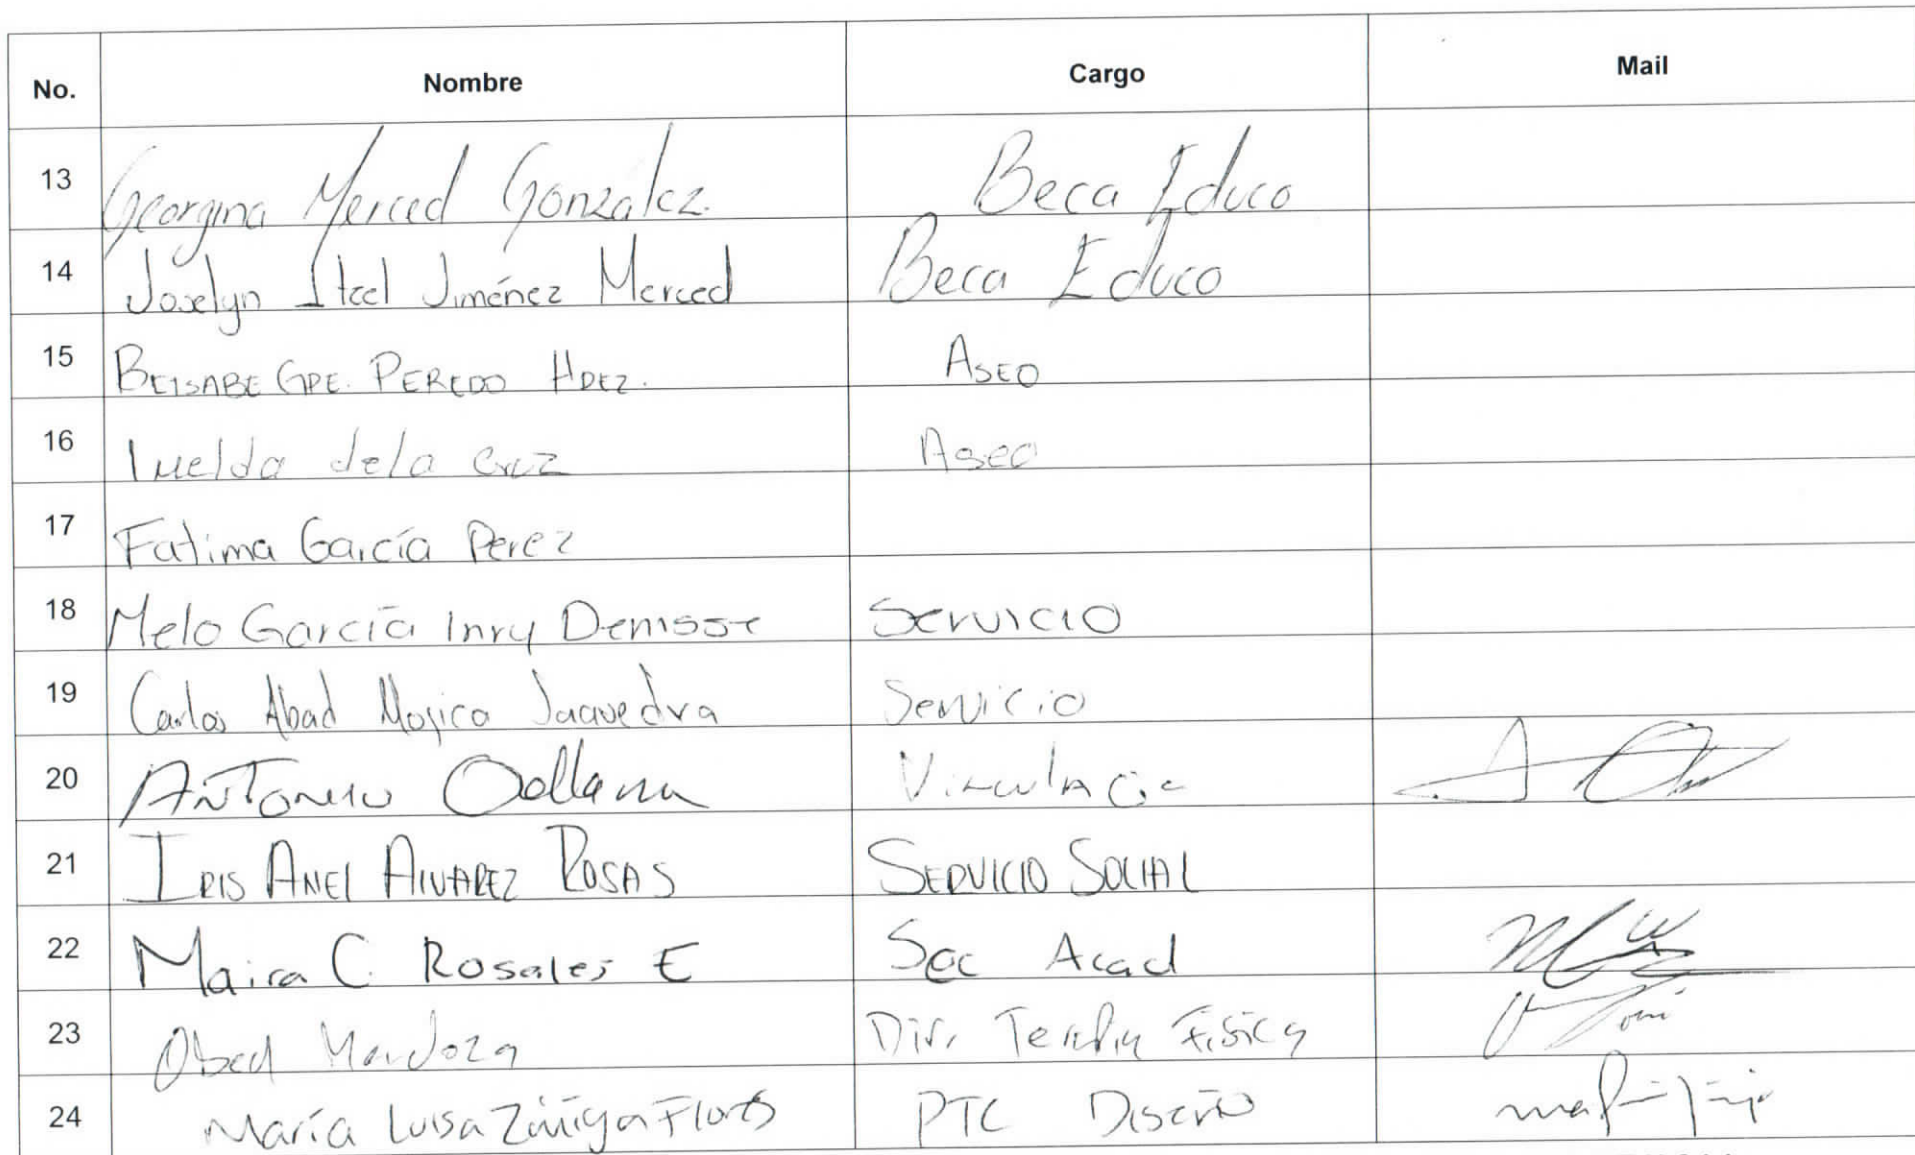 No. Nombre Cargo Mail
13 Georgina Merced González. Beca Educo
14 Joselyn Itzel Jiménez Merced Beca Educo
15 BETSABE GPE. PEREDO HDEZ. ASEO
16 Imelda dela cruz Aseo
17 Fatima García Perez
18 Melo García Inry Denisse Servicio
19 Carlos Abad Mojica Saavedra Servicio
20 ANTONIO Orellana Vinculación
21 IRIS ANEL ALVAREZ ROSAS SERVICIO SOCIAL
22 Maira C. Rosales E Sec Acad
23 Obed Mendoza Div. Terapia Física
24 María Luisa Zúñiga Flores PTC Diseño